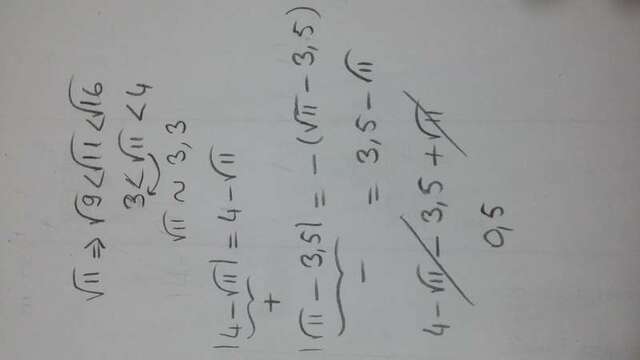 √11 ⇒ √9 < √11 < √16
3 < √11 < 4
√11 ~ 3,3
|4 - √11| = 4 - √11
+
|√11 - 3,5| = -(√11 - 3,5)
- = 3,5 - √11
4 - √11 - 3,5 + √11
0,5